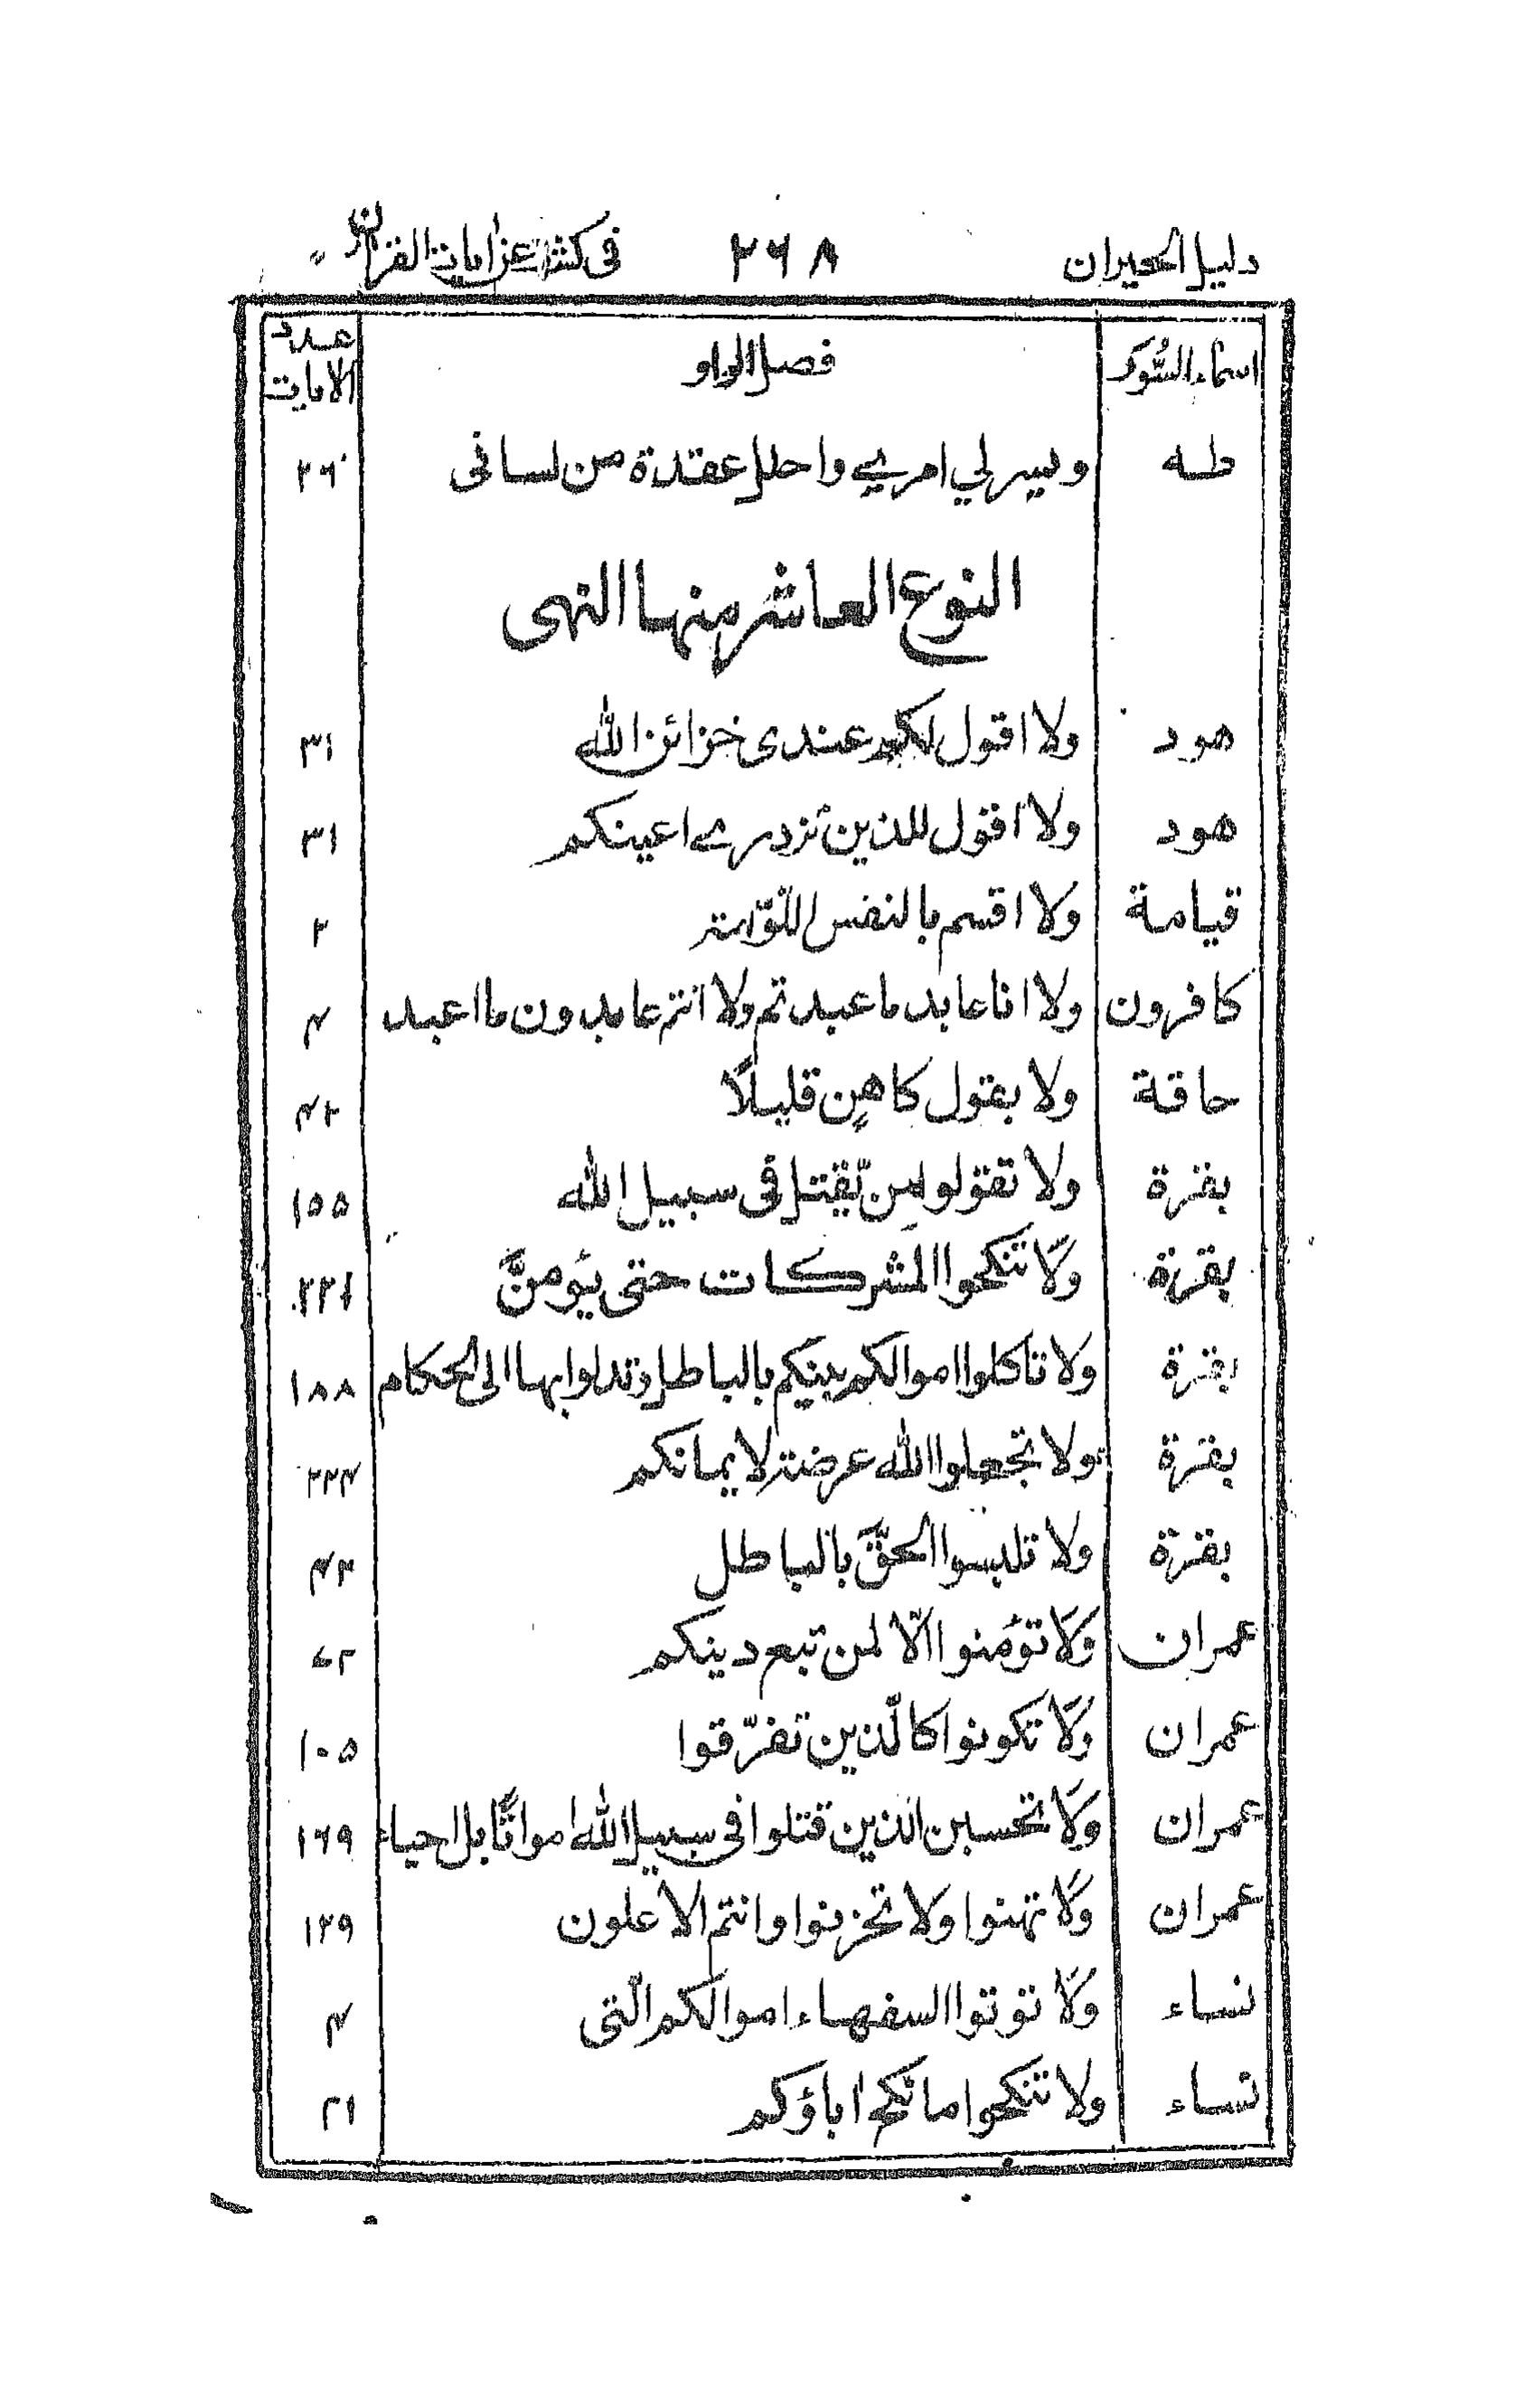 دليل الحيران ٢٦٨ في كشف عن ايات القران
اسماء السُّور فصل الواو عدد الايات
طه ويسر لي امري واحلل عقدة من لساني ٢٦
النوع العاشر منها النهى
هود ولا اقول لكم عندى خزائن الله ٣١
هود ولا اقول للذين تزدرے اعينكم ٣١
قيامة ولا اقسم بالنفس اللّوّامة ٢
كافرون ولا انا عابد ما عبدتم ولا انتم عابدون ما اعبد ٤
حاقة ولا بقول كاهنٍ قليلًا ٤٢
بقرة ولا تقولو لمن يّقتل فى سبيل الله ١٥٥
بقرة ولَا تنكحوا المشركات حتى يؤمنَّ ٢٢١
بقرة ولا تاكلوا اموالكم بينكم بالباطل وتدلوا بها الى الحكام ١٨٨
بقرة ولا تجعلوا الله عرضة لايمانكم ٢٢٤
بقرة ولا تلبسوا الحقَّ بالباطل ٤٢
عمران ولَا تؤمنوا الّا لمن تبع دينكم ٧٢
عمران ولَا تكونوا كالّذين تفرّقوا ١٠٥
عمران ولَا تحسبن الذين قتلوا فى سبيل الله امواتًا بل احياء ١٦٩
عمران ولَا تهنوا ولا تحزنوا وانتم الاعلون ١٣٩
نساء ولَا توتوا السفهاء اموالكم الّتى ٤
نساء ولا تنكحوا ما نكح اباؤكم ٢١